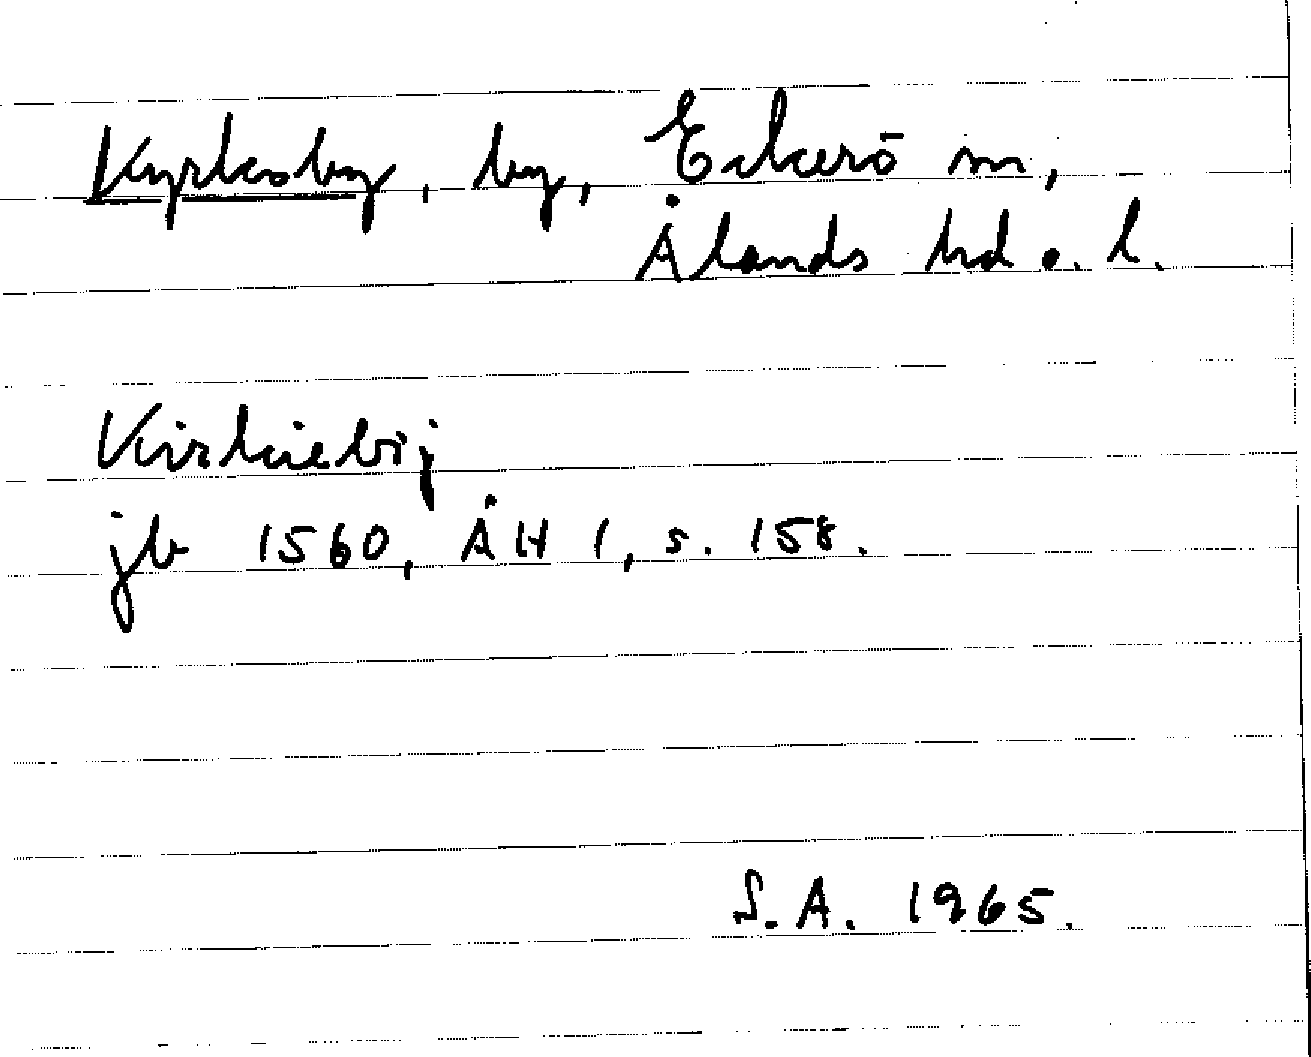 Kyrkoby, by, Eckerö sn,
Ålands hd o. l.
Kirkiebij
jb 1560, ÅH 1, s. 158.
S.A. 1965.